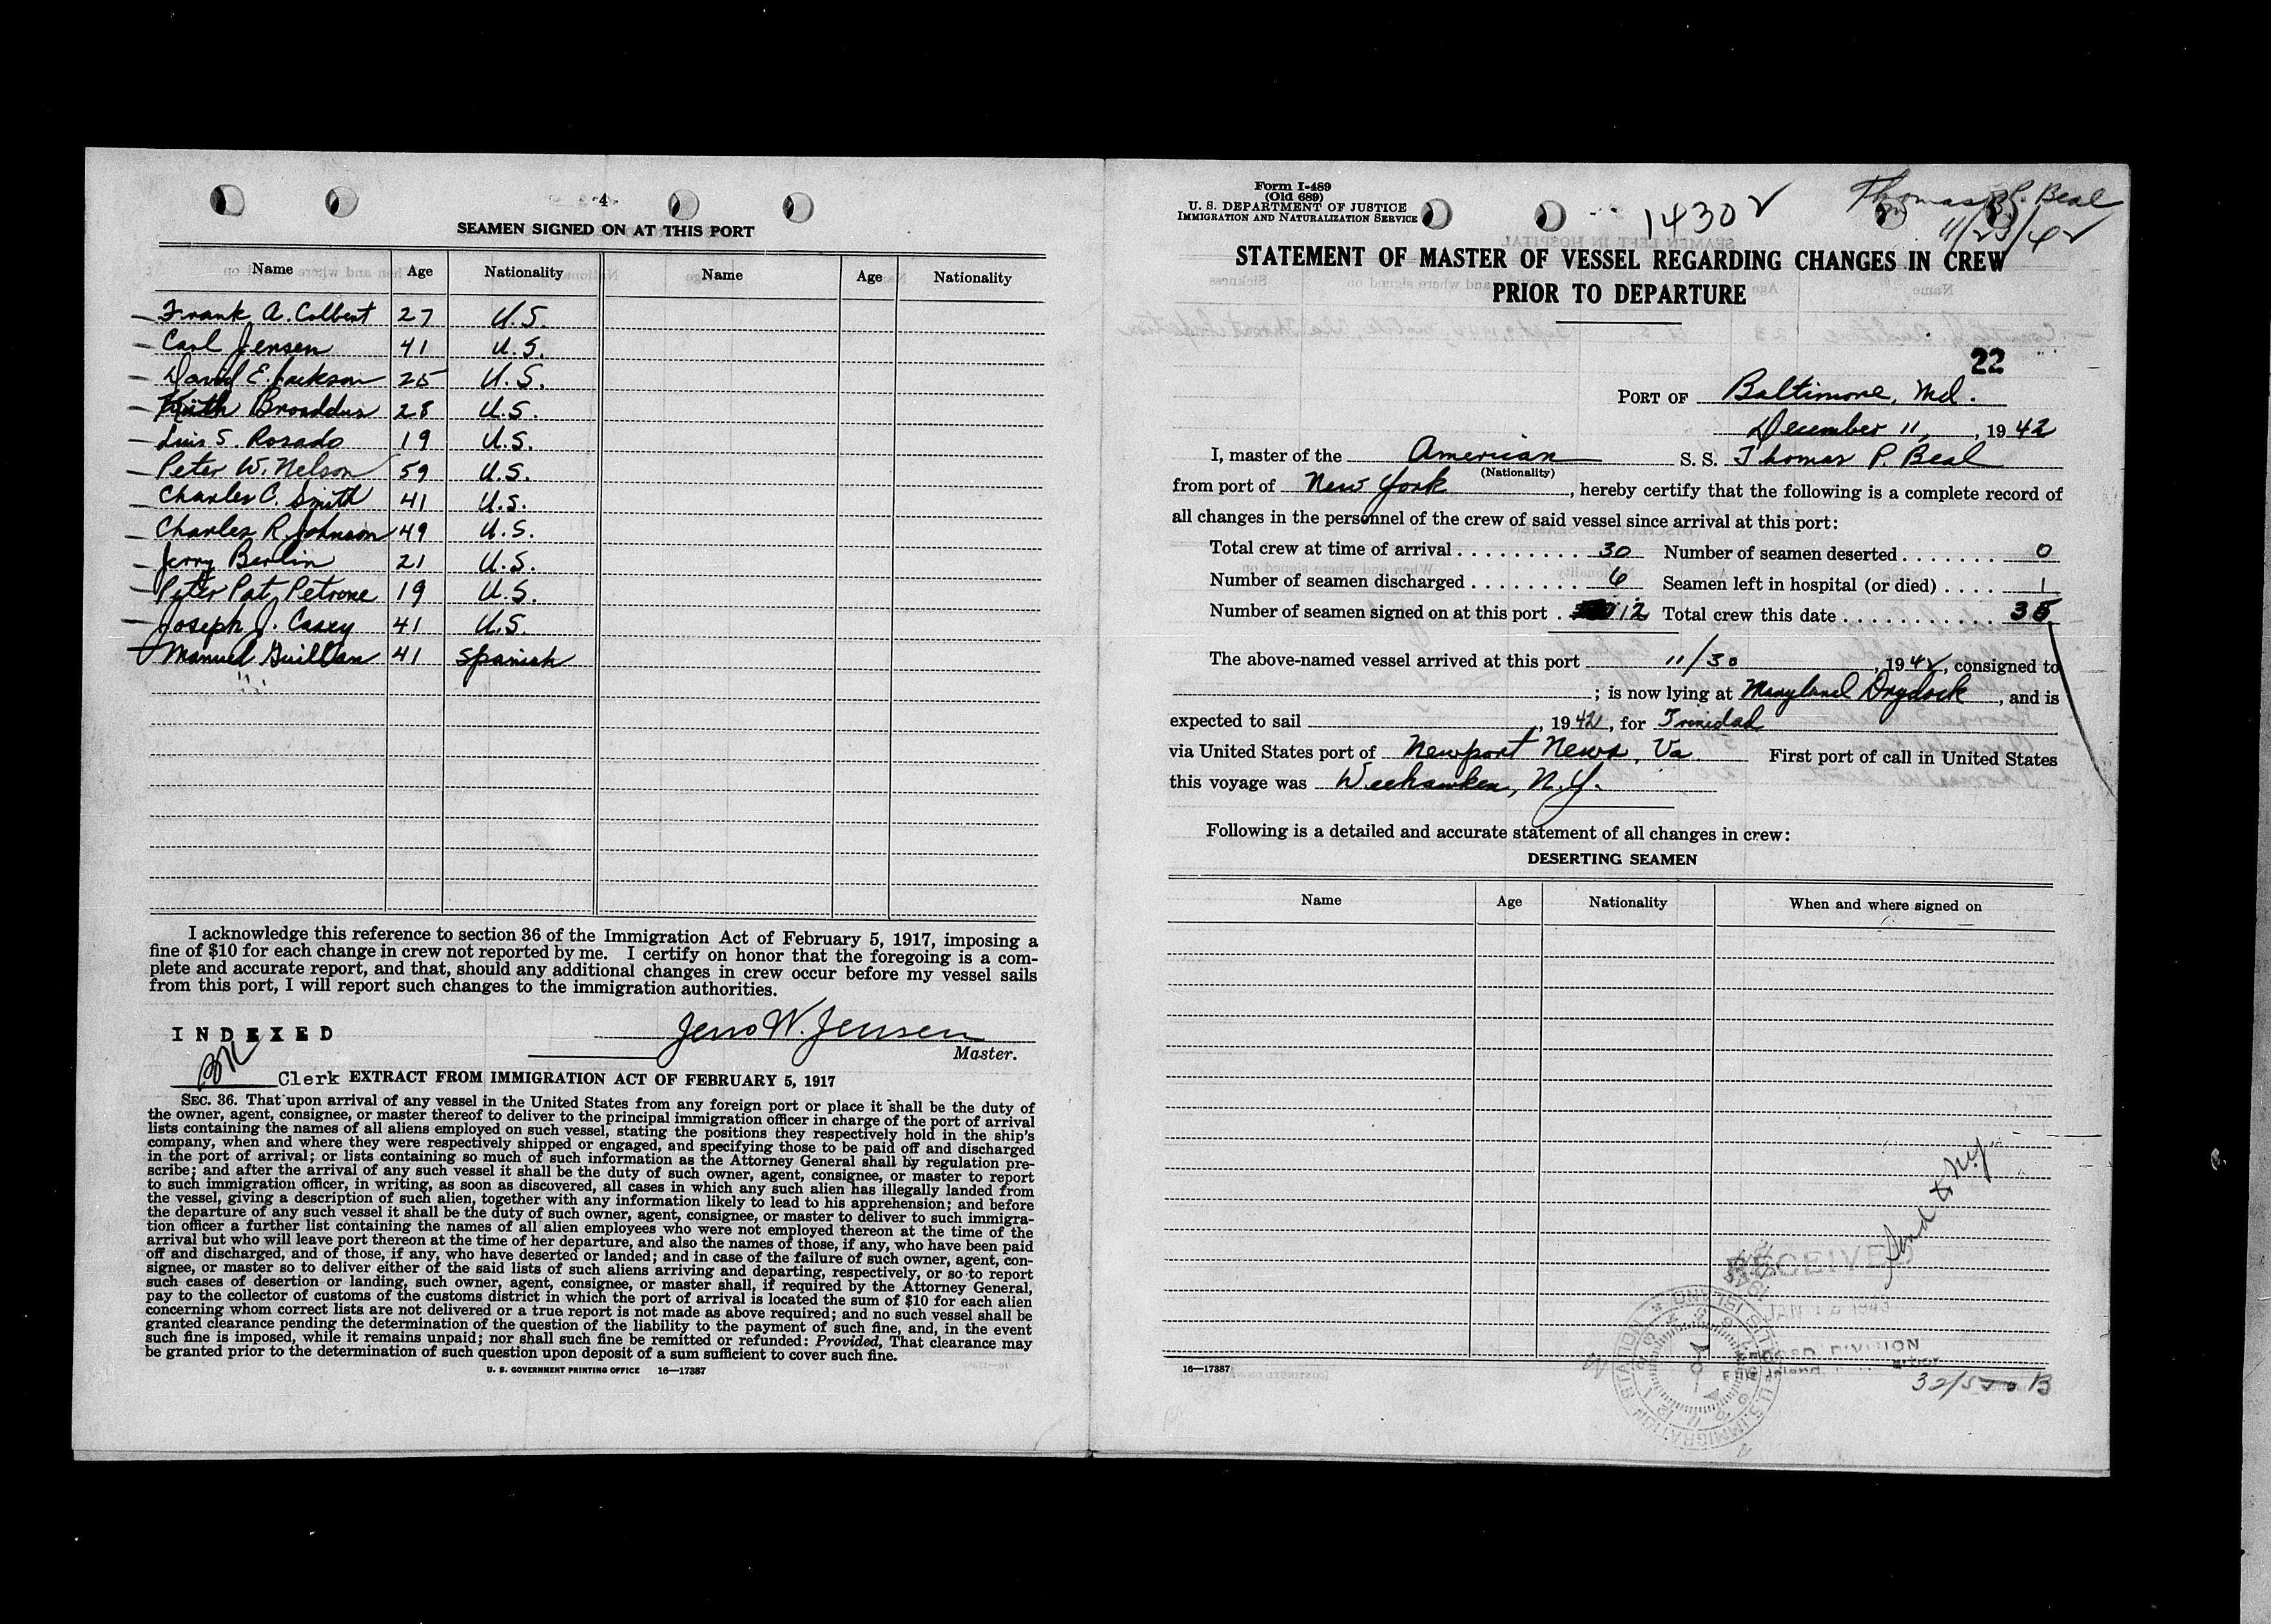 4
SEAMEN SIGNED ON AT THIS PORT
Name Age Nationality Name Age Nationality
Frank A. Colbert 27 U.S.
Carl Jensen 41 U.S.
David E. Jackson 25 U.S.
Keith Broaddus 28 U.S.
Luis S. Rosado 19 U.S.
Peter W. Nelson 59 U.S.
Charles C. Smith 41 U.S.
Charles R. Johnson 49 U.S.
Jerry Berlin 21 U.S.
Peter Pat Petrone 19 U.S.
Joseph J. Casey 41 U.S.
Manuel Guillan 41 Spanish
I acknowledge this reference to section 36 of the Immigration Act of February 5, 1917, imposing a
fine of $10 for each change in crew not reported by me. I certify on honor that the foregoing is a com-
plete and accurate report, and that, should any additional changes in crew occur before my vessel sails
from this port, I will report such changes to the immigration authorities.
INDEXED
Jens W. Jensen
Master.
Clerk EXTRACT FROM IMMIGRATION ACT OF FEBRUARY 5, 1917
SEC. 36. That upon arrival of any vessel in the United States from any foreign port or place it shall be the duty of
the owner, agent, consignee, or master thereof to deliver to the principal immigration officer in charge of the port of arrival
lists containing the names of all aliens employed on such vessel, stating the positions they respectively hold in the ship's
company, when and where they were respectively shipped or engaged, and specifying those to be paid off and discharged
in the port of arrival; or lists containing so much of such information as the Attorney General shall by regulation pre-
scribe; and after the arrival of any such vessel it shall be the duty of such owner, agent, consignee, or master to report
to such immigration officer, in writing, as soon as discovered, all cases in which any such alien has illegally landed from
the vessel, giving a description of such alien, together with any information likely to lead to his apprehension; and before
the departure of any such vessel it shall be the duty of such owner, agent, consignee, or master to deliver to such immigra-
tion officer a further list containing the names of all alien employees who were not employed thereon at the time of the
arrival but who will leave port thereon at the time of her departure, and also the names of those, if any, who have been paid
off and discharged, and of those, if any, who have deserted or landed; and in case of the failure of such owner, agent, con-
signee, or master so to deliver either of the said lists of such aliens arriving and departing, respectively, or so to report
such cases of desertion or landing, such owner, agent, consignee, or master shall, if required by the Attorney General,
pay to the collector of customs of the customs district in which the port of arrival is located the sum of $10 for each alien
concerning whom correct lists are not delivered or a true report is not made as above required; and no such vessel shall be
granted clearance pending the determination of the question of the liability to the payment of such fine, and, in the event
such fine is imposed, while it remains unpaid; nor shall such fine be remitted or refunded: Provided, That clearance may
be granted prior to the determination of such question upon deposit of a sum sufficient to cover such fine.
U. S. GOVERNMENT PRINTING OFFICE 16—17387
Form I-489
(Old 689)
U. S. DEPARTMENT OF JUSTICE
IMMIGRATION AND NATURALIZATION SERVICE
1430
Thomas P. Beal
11/23/42
STATEMENT OF MASTER OF VESSEL REGARDING CHANGES IN CREW
PRIOR TO DEPARTURE
22
PORT OF Baltimore, Md.
December 11, 1942
I, master of the American S. S. Thomas P. Beal
(Nationality)
from port of New York, hereby certify that the following is a complete record of
all changes in the personnel of the crew of said vessel since arrival at this port:
Total crew at time of arrival 30 Number of seamen deserted 0
Number of seamen discharged 6 Seamen left in hospital (or died) 1
Number of seamen signed on at this port 12 Total crew this date 35
The above-named vessel arrived at this port 11/30, 1942, consigned to
; is now lying at Maryland Drydock, and is
expected to sail , 1942, for Trinidad
via United States port of Newport News, Va First port of call in United States
this voyage was Weehawken, N.Y.
Following is a detailed and accurate statement of all changes in crew:
DESERTING SEAMEN
Name Age Nationality When and where signed on
Send to N.Y.
RECEIVED
JAN 1943
RECORD DIVISION
Ellis Island
U.S. IMMIGRATION STATION ELLIS ISLAND
16—17387